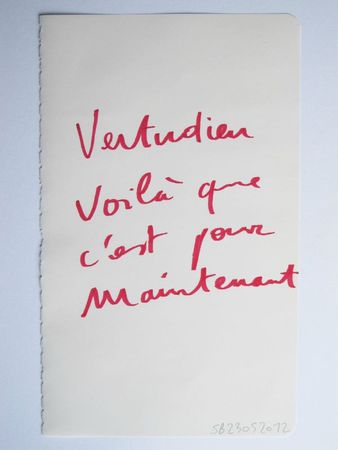 Vertudieu
Voilà que
c'est pour
Maintenant
SB23052012